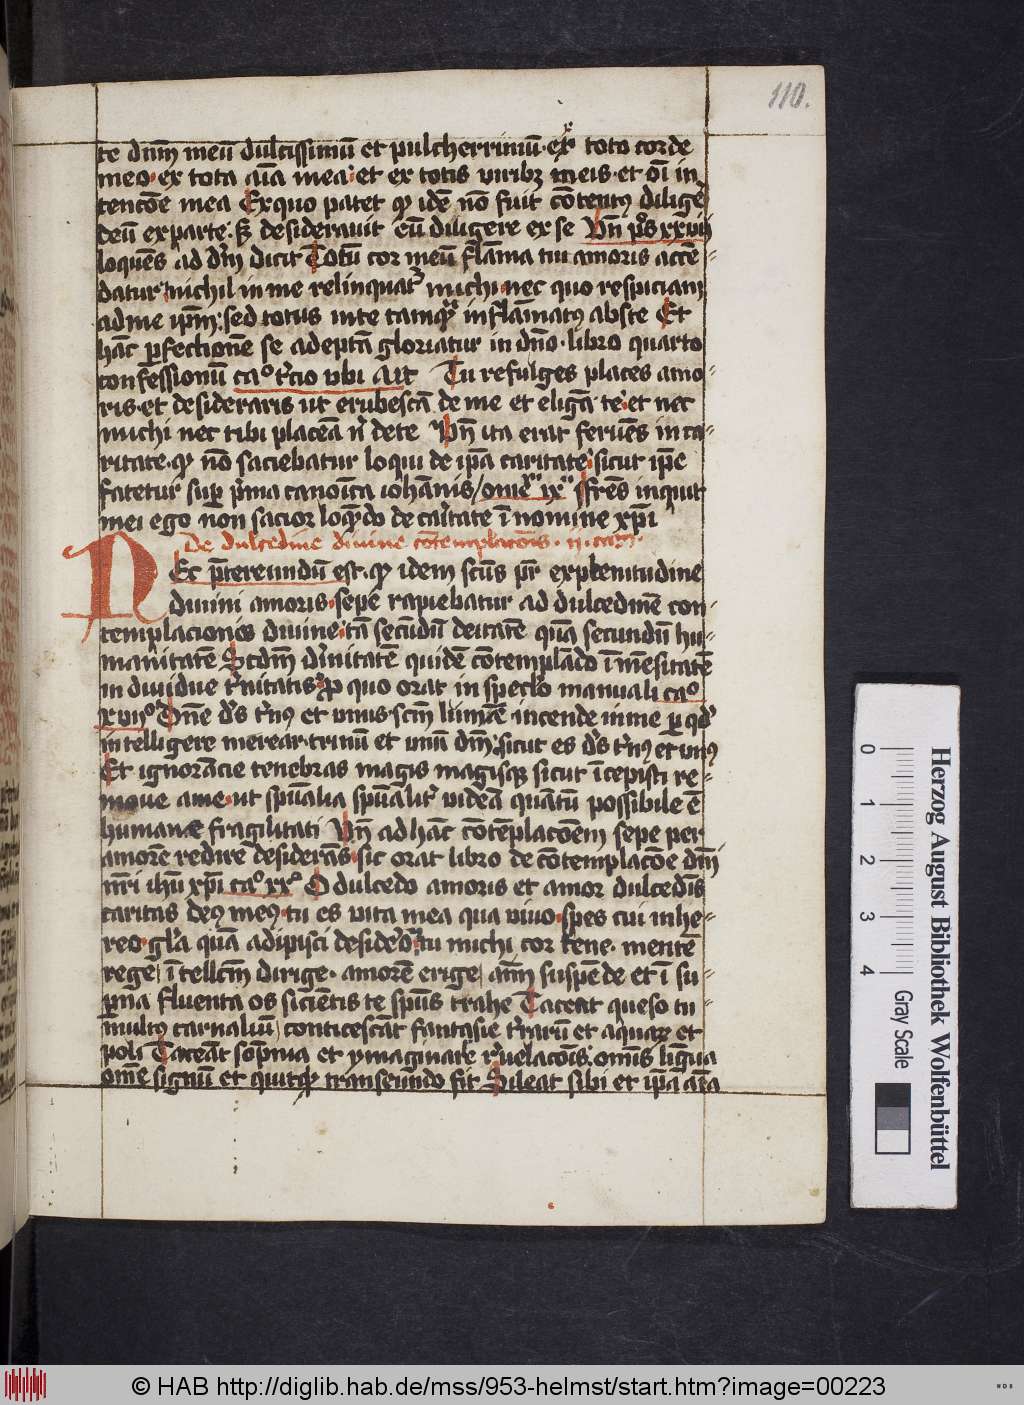 110.
te dnm̄ meū dulcissimū et pulcherrimū ex toto corde
meo ex tota aīa mea et ex totis viribꝫ meis et oī in
tencōe mea Ex quo patet ꝙ idē nō fuit cōtentꝰ diligē
deū ex parte sꝫ desideravit eū diligere ex se Vn̄ ps xxviij
loquēs ad dm̄ dicit Totū cor meū flāma tui amoris accē
datur nichil in me relinquatr̄ michi nec quo respiciam
ad me ipm̄ sed totus in te tamqꝫ inflāmatꝰ abste Et
hāc ꝑfectionē se adeptā gloriatur in dn̄o libro quarto
confessionū caº tr̄cio vbi Ait Tu refulges places amo
ris et desideraris ut erubescā de me et eligā te et nec
michi nec tibi placeā nͥ de te Vn̄ ita erat fervēs in ca
ritate ꝙ nō saciebatur loqui de ipā caritate sicut ipē
fatetur sup pͥma canoīca iohānis omeͥ ix frēs inquit
mei ego non sacior loquēdo de caritate ī nomine xp̄i
De dulcedine divine cōtemplacōis ij cam
Ec pͣtereundū est ꝙ idem scūs pr̄ ex plenitudine
divini amoris sepe rapiebatur ad dulcedinē con
templacionis divine tā secūdū deitatē quā secundū hu
manitatē Scdm̄ dīnitatē quidē cōtemplādo īmēsitatē
in dividue tr̄nitatis ꝓ quo orat in speclo manuali caº
xvijº Dn̄e ds̄ tr̄nꝰ et vnus scm̄ lumē incende in me ꝑ qd̄
intelligere merear trinū et vnū dm̄ sicut es ds̄ tr̄nꝰ et vnꝰ
Et ignorācie tenebras magis magisqꝫ sicut īcepisti re
move a me ut spūalia spūalitr̄ videā quātū possibile ē
humanae fragilitati Vn̄ ad hāc cōtēplacōem sepe per
amorē redire desiderās sic orat libro de cōtemplacōe dn̄i
nr̄i ihū xp̄i caº xxº O dulcedo amoris et amor dulcedīs
caritas deꝰ meꝰ tu es vita mea qua vivo spes cui inhe
reo glͣa quā adipisci desidero tu michi cor tene mentē
rege ītellcm̄ dirige amorē erige aīm suspēde et ī su
pͥna fluenta os sicientis te spūs trahe Taceat queso tu
multꝰ carnaliū conticescāt fantasie tr̄rarū et aquarꝫ et
poli Taceāt sōpnia et ymaginarie rͤvelacōis omīs lingua
omē signū et quitqͥd transeundo fit Sileat sibi et ipā aīa
0
1
2
3
4
Gray Scale
Herzog August Bibliothek Wolfenbüttel
© HAB http://diglib.hab.de/mss/953-helmst/start.htm?image=00223